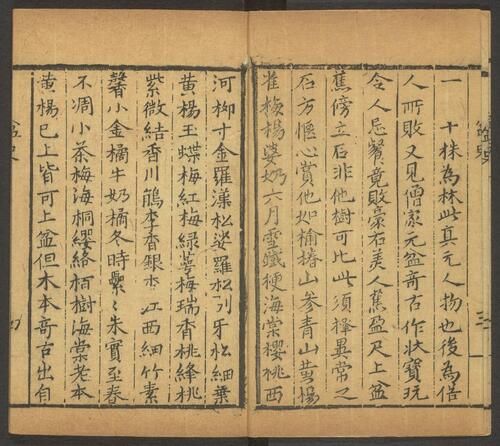 一十株為林此真元人物也後為借
人所敗又見僧家元盆奇古作狀寶玩
令人忘餐竟敗豪右美人蕉盈尺上盆
蕉傍立石非他樹可比此須擇異常之
石方愜心賞他如榆椿山參青山黃楊
雀梅楊婆奶六月雪鐵梗海棠櫻桃西
河柳寸金羅漢松娑羅松刂牙松細葉
黃楊玉蝶梅紅梅綠萼梅瑞香桃絳桃
紫微結香川鵑李杏銀杏江西細竹素
馨小金橘牛奶橘冬時纍〻朱實至春
不凋小茶梅海桐纓絡栢樹海棠老本
黃楊已上皆可上盆但木本奇古出自